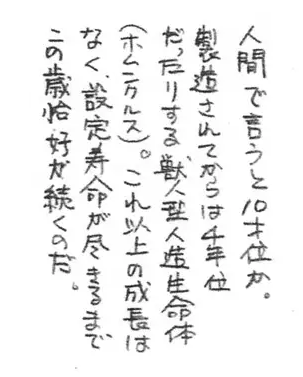 人間で言うと10才位か。
製造されてからは4年位
だったりする獣人型人造生命体
(ホムンクルス)。これ以上の成長は
なく、設定寿命が尽きるまで
この歳恰好が続くのだ。